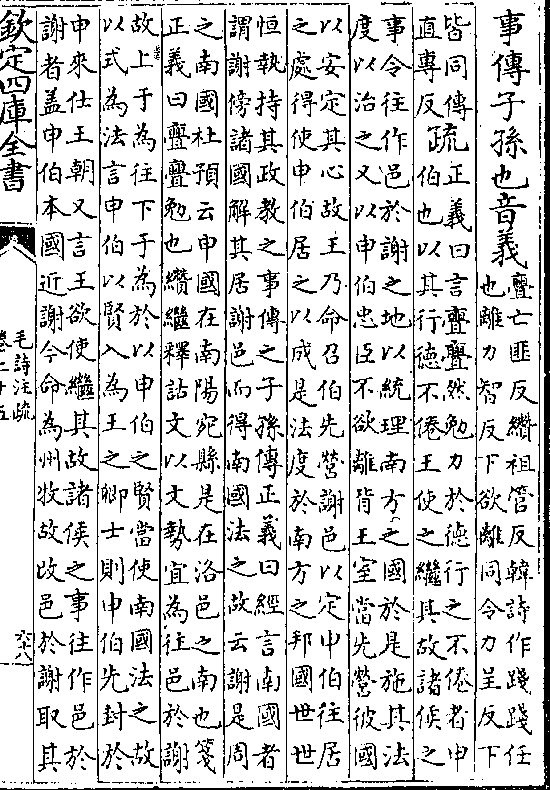 事傳子孫也音義亹亡匪反纘祖管反韓詩作踐踐任
也離力智反下欲離同令力呈反下
皆同傳
直專反
疏正義曰言亹亹然勉力於德行之不倦者申
伯也以其行德不倦王使之繼其故諸侯之
事令往作邑於謝之地以統理南方之國於是施其法
度以治之又以申伯忠臣不欲離背王室當先營彼國
以安定其心故王乃命召伯先營謝邑以定申伯往居
之處得使申伯居之以成是法度於南方之邦國世世
恒執持其政教之事傳之子孫傳正義曰經言南國者
謂謝傍諸國解其居謝邑而得南國法之故云謝是周
之南國杜預云申國在南陽宛縣是在洛邑之南也箋
正義曰亹亹勉也纘繼釋詁文以文勢宜為往邑於謝
故上于為往下于為於以申伯之賢當使南國法之故
以式為法言申伯以賢入為王之卿士則申伯先封於
申來仕王朝又言王欲使繼其故諸侯之事往作邑於
謝者盖申伯本國近謝今命為州牧故改邑於謝取其
欽定四庫全書
毛詩注疏
卷二十五
六十八